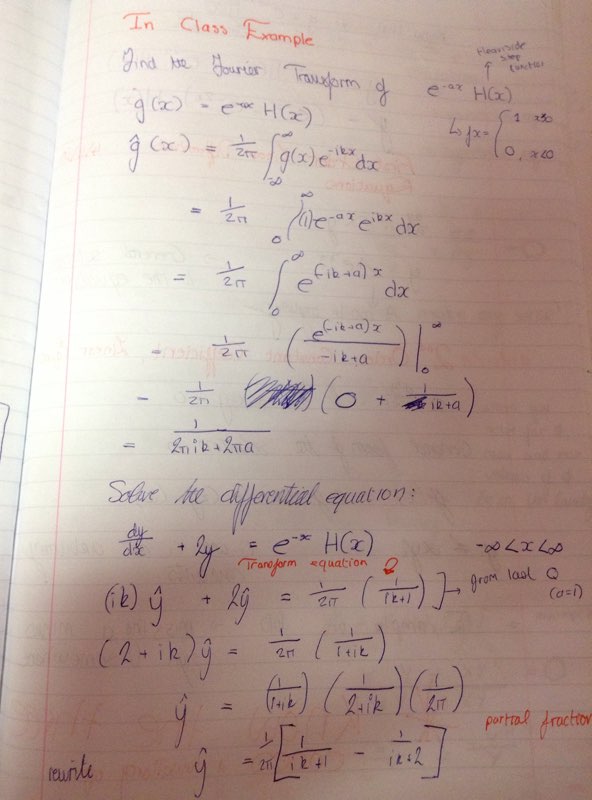 In Class Example
Find the Fourier Transform of e^{-ax} H(x)
Heaviside step function
↳ fx = { 1 x≥0
0, x<0
g(x) = e^{-ax} H(x)
ĝ(x) = 1/2π ∫_{-∞}^{∞} g(x) e^{-ikx} dx
= 1/2π ∫_0^∞ (1) e^{-ax} e^{ikx} dx
= 1/2π ∫_0^∞ e^{(-ik+a)x} dx
= 1/2π ( e^{(-ik+a)x} / -ik+a ) |_0^∞
= 1/2π ( 0 + 1/ik+a )
= 1/2πik+2πa
Solve the differential equation:
dy/dx + 2y = e^{-x} H(x) -∞<x<∞
Transform equation
(ik) ŷ + 2ŷ = 1/2π ( 1/ik+1 ) ] → from last Q (a=1)
(2+ik) ŷ = 1/2π ( 1/1+ik )
ŷ = ( 1/1+ik ) ( 1/2+ik ) ( 1/2π )
partial fraction
rewrite ŷ = 1/2π [ 1/ik+1 - 1/ik+2 ]